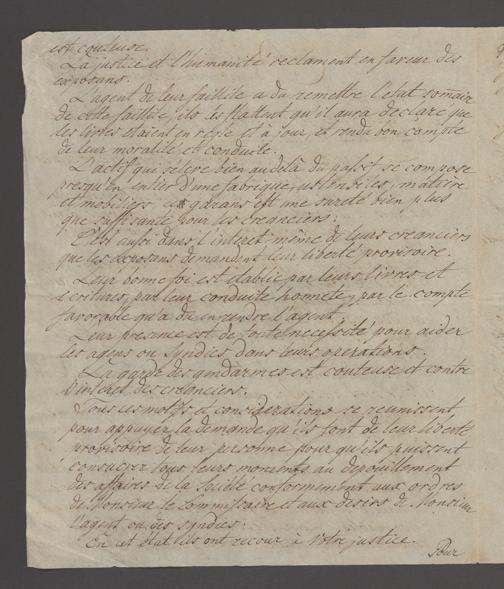 est couteuse.
La justice et l'humanité reclament en faveur des
exposans.
L'agent de leur faillite a du remettre l'état somaire
de cette faillite, ils se flattent qu'il aura declaré que
les livres etaient en règle et à jour, et rendu bon compte
de leur moralité et conduite.
L'actif qui s'élève bien au delà du passif se compose
presqu'en entier d'une fabrique, ustensiles, matiere
et mobiliers garans est une sureté bien plus
que suffisante pour les creanciers.
C'est aussi dans l'interet même de leurs creanciers
que les exposans demandent leur liberté provisoire.
Leur bonne foi est établie par leurs livres et
ecritures, par leur conduite honnete, par le compte
favorable qu'a du en rendre l'agent.
Leur presence est de toute necessité pour aider
les agens ou syndics dans leurs operations.
La garde des gendarmes est couteuse et contre
l'interet des creanciers.
Tous ces motifs et considerations se reunissent
pour appuyer la demande qu'ils font de leur liberté
provisoire de leur personne pour qu'ils puissent
consacrer tous leurs moments au depouillement
des affaires de la Société conformement aux ordres
de Monsieur le Commissaire et aux desirs de Monsieur
l'agent ou des syndics.
En cet état ils ont recour à Votre justice.
Pour